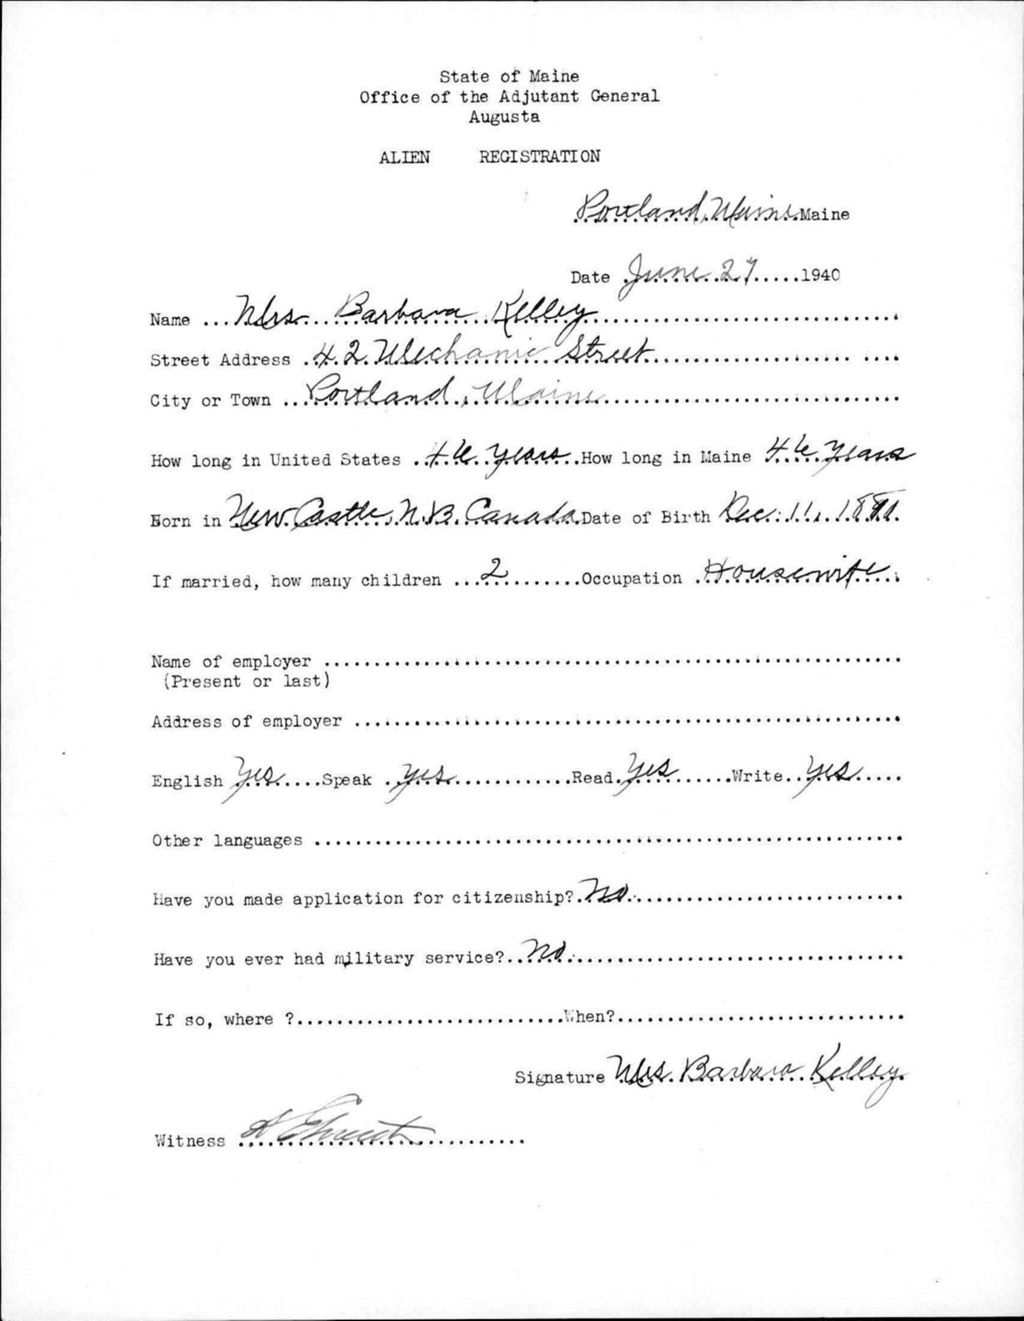 State of Maine
Office of the Adjutant General
Augusta
ALIEN REGISTRATION
Portland, Maine Maine
Date June 27 1940
Name Mrs. Barbara Kelley
Street Address 42 Mechanic Street
City or Town Portland, Maine
How long in United States 46 Years How long in Maine 46 Years
Born in New Castle, N.B. Canada Date of Birth Dec. 11,
If married, how many children 2 Occupation Housewife
Name of employer
(Present or last)
Address of employer
English Yes Speak yes Read Yes Write yes
Other languages
Have you made application for citizenship? No
Have you ever had military service? No
If so, where ? When?
Signature Mrs. Barbara Kelley
Witness